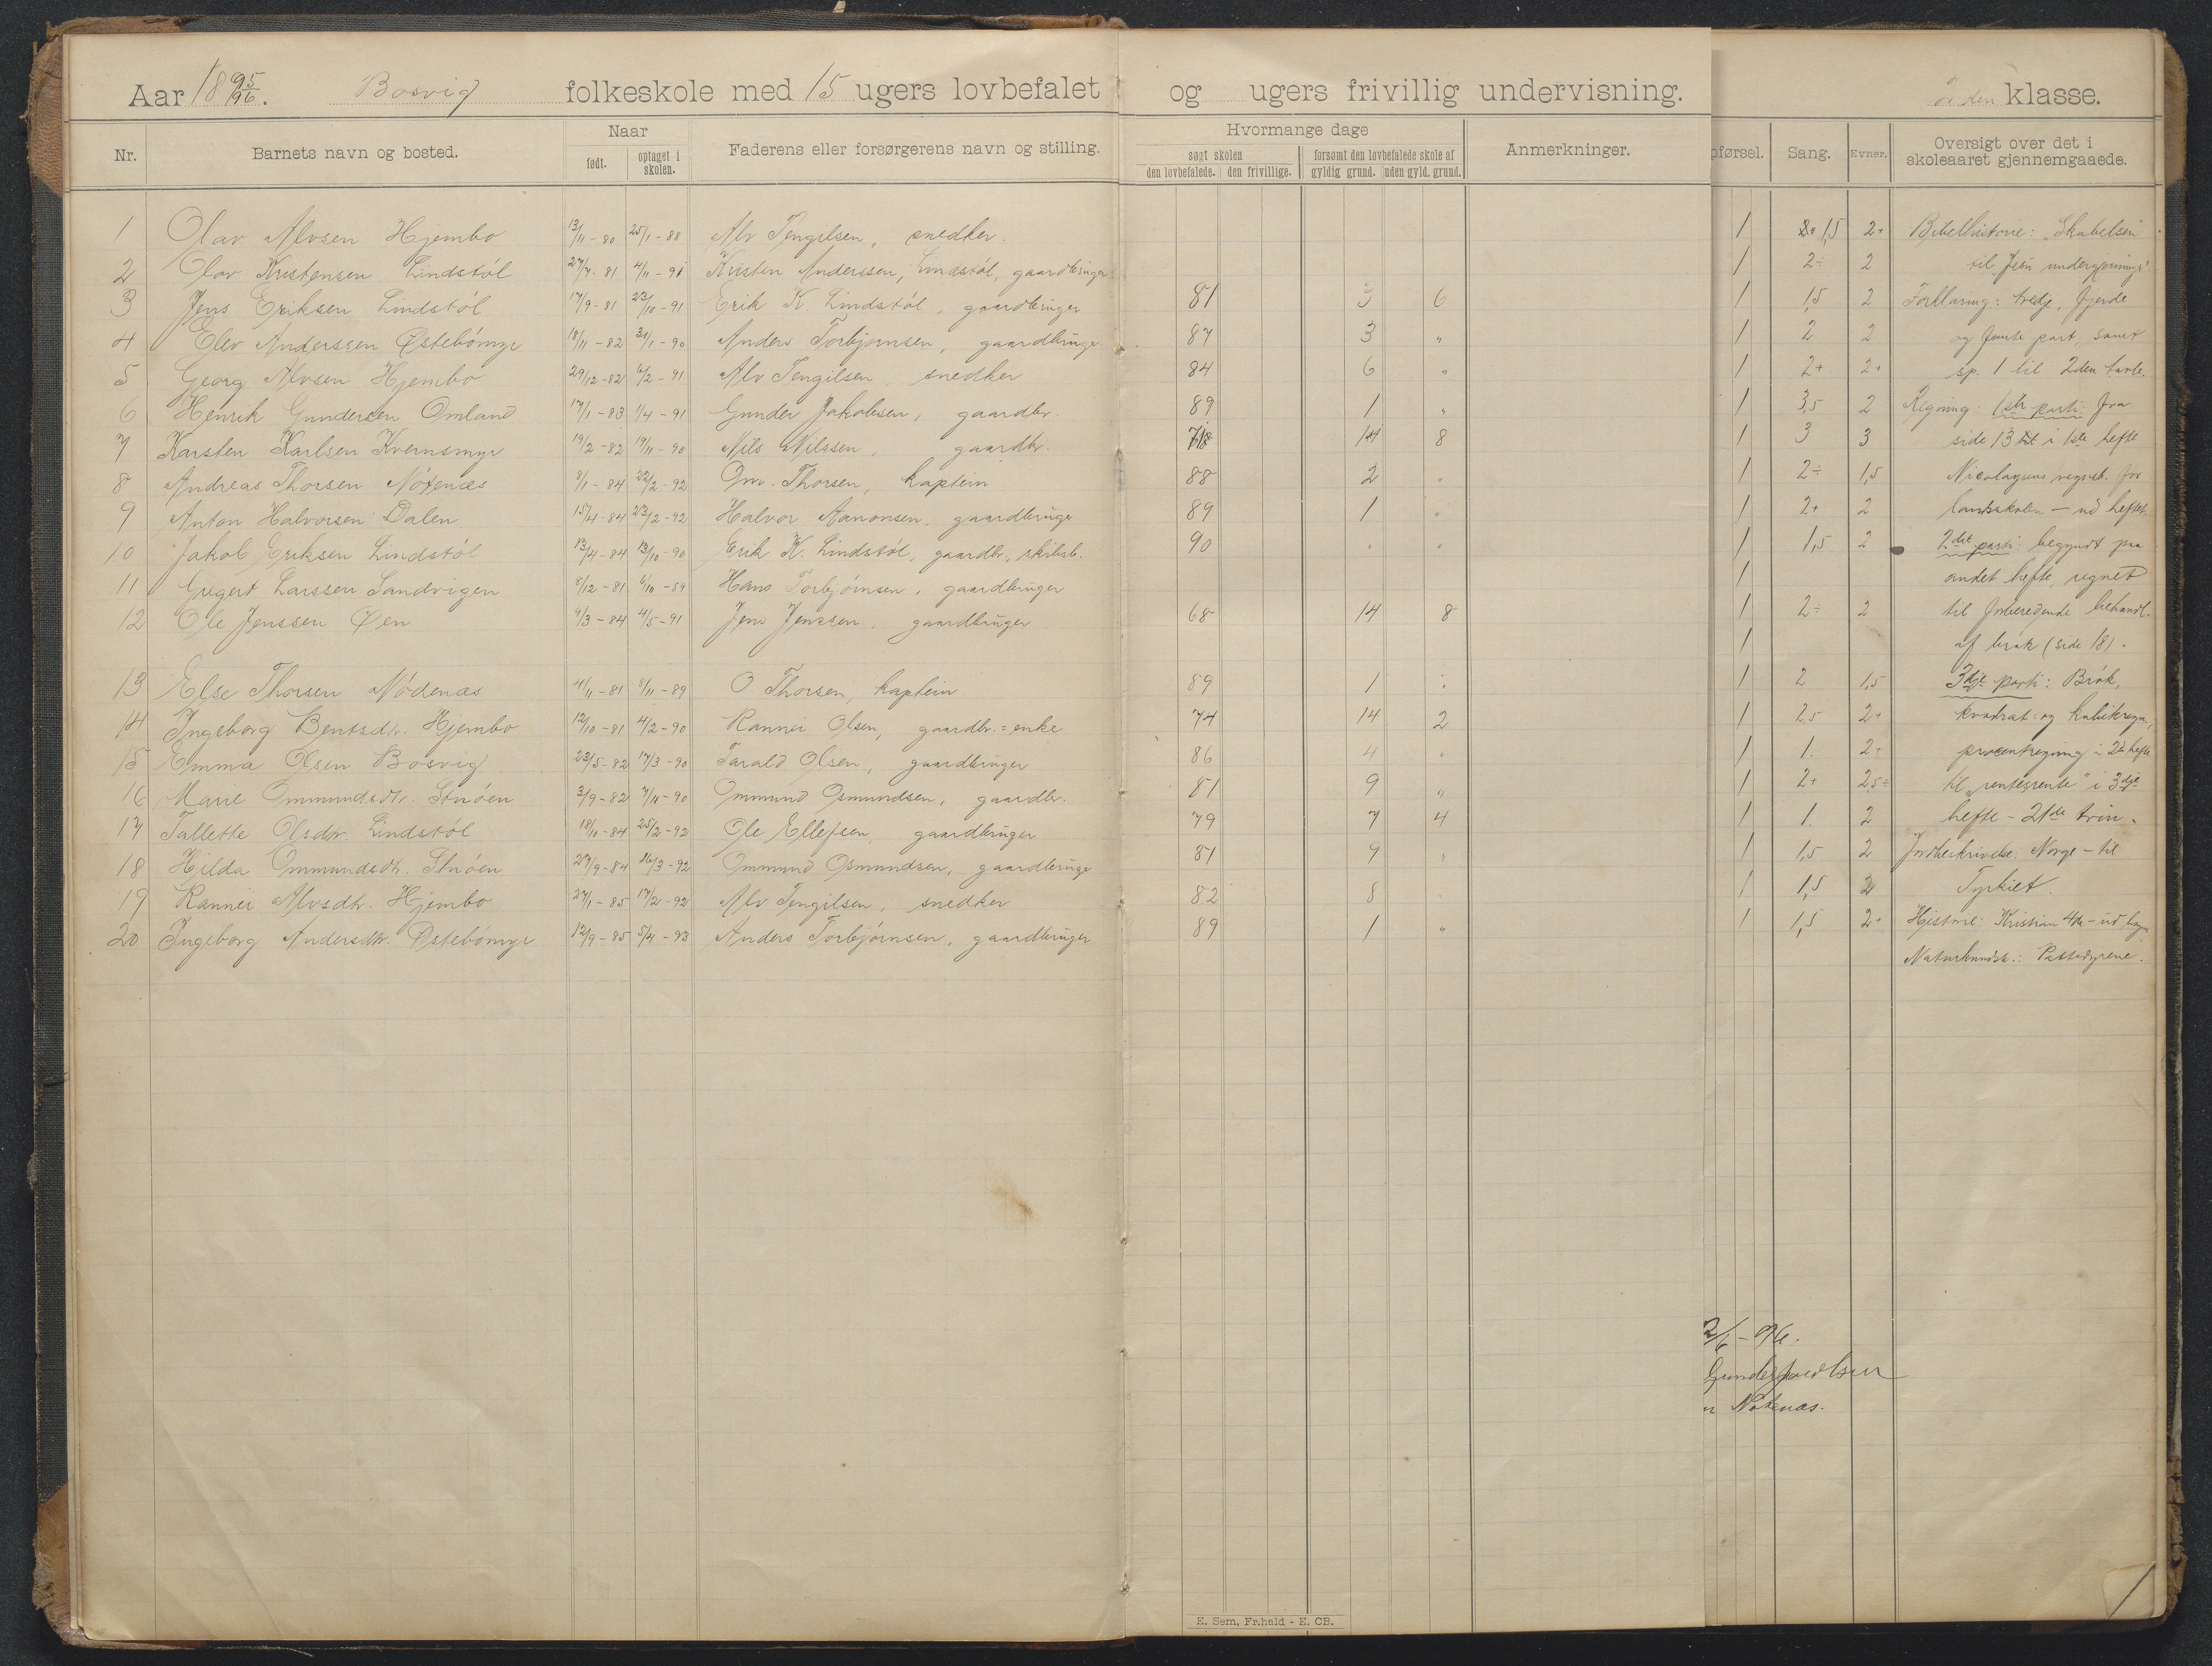 Aar 18 95/96. Bosvig folkeskole med 15 ugers lovbefalet og ugers frivillig undervisning. 2den klasse.
Nr. Barnets navn og bosted. Naar født. optaget i skolen. Faderens eller forsørgerens navn og stilling. Hvormange dage søgt skolen den lovbefalede. den frivillige. forsømt den lovbefalede skole af gyldig grund. uden gyld. grund. Anmerkninger. pførsel. Sang. Evner. Oversigt over det i skoleaaret gjennemgaaede.
1 Olav Alvsen Hjembo 13/11-80 25/1-88 Alv Tengilsen, snedker. 1 1,5 2+ Bibelhistorie: "Skabelsen"
2 Olav Kristensen Lindstöl 27/7-81 4/11-91 Kristen Anderssen, Lindstöl, gaardbruger 1 2÷ 2 til "Jesu undergjerninger".
3 Jens Eriksen Lindstöl 17/9-81 22/10-91 Erik K. Lindstöl, gaardbruger 81 3 6 1 1,5 2 Forklaring: tredje, fjerde
4 Elev Anderssen Østebömyr 18/11-82 30/1-90 Anders Torbjörnsen, gaardbruger 87 3 " 1 2 2 og femte part, samt
5 Georg Alvsen Hjembo 29/12-82 6/2-91 Alv Tengilsen, snedker 84 6 " 1 2+ 2+ sp. 1 til 2den tavle.
6 Henrik Gundersen Omland 17/1-83 1/4-91 Gunder Jakobsen, gaardbr. 89 1 " 1 3,5 2 Regning: 1ste parti: fra
7 Karsten Karlsen Kvernsmyr 19/2-82 19/11-90 Nils Nilssen, gaardbr. 14 8 1 3 3 side 13 i 1ste hefte
8 Andreas Thorsen Nötenæs 8/1-84 22/2-92 Om. Thorsen, kaptein 88 2 " 1 2÷ 1,5 Nicolaysens regneb. for
9 Anton Halvorsen Dalen 15/4-84 23/2-92 Halvor Aanonsen, gaardbruger 89 1 " 1 2+ 2 landsskolen - ud heftet.
10 Jakob Eriksen Lindstöl 13/4-84 13/10-90 Erik K. Lindstöl, gaardbr., skibsb. 90 " " 1 1,5 2 2det parti: begyndt paa
11 Gregert Larssen Sandvigen 8/12-81 6/10-89 Hans Torbjörnsen, gaardbruger 1 andet hefte, regnet
12 Ole Jenssen Øen 9/3-84 4/5-91 Jens Jenssen, gaardbruger 68 14 8 1 2÷ 2 til forberedende behandl.
1 af brök (side 18).
13 Else Thorsen Nödenæs 4/11-81 8/11-89 O Thorsen, kaptein 89 1 " 1 2 1,5 3dje parti: Brök,
14 Ingeborg Bentsdtr. Hjembo 12/10-81 4/2-90 Rannei Olsen, gaardbr.=enke 74 14 2 1 2,5 2+ kvadrat- og kubikregn.,
15 Emma Olsen Bosvig 23/5-82 17/3-90 Tarald Olsen, gaardbruger 86 4 " 1 1. 2÷ procentregning i 2det hefte
16 Marie Ommundsdtr. Stuöen 3/9-82 7/11-90 Ommund Osmundsen, gaardbr. 81 9 " 1 2+ 2,5÷ til "rentesrente" i 3dje
17 Tallette Olsdtr. Lindstöl 18/10-84 25/2-92 Ole Ellefsen, gaardbruger 79 7 4 1 1. 2 hefte - 21de trin.
18 Hilda Ommundsdtr. Stuöen 27/9-84 16/3-92 Ommund Osmundsen, gaardbruger 81 9 " 1 1,5 2 Jordbeskrivelse: Norge - til
19 Rannei Alvsdtr. Hjembo 27/1-85 17/2-92 Alv Tengilsen, snedker 82 8 1 1,5 2 Tyrkiet.
20 Ingeborg Andersdtr. Østebömyr 12/9-85 5/4-93 Anders Torbjörnsen, gaardbruger 89 1 " 1 1,5 2+ Historie: Kristian 4de - ud bogen
Naturkundsk.: Pattedyrene.
2/6-96.
Nötenæs.
E. Sem, Fr.hald - E. CB.